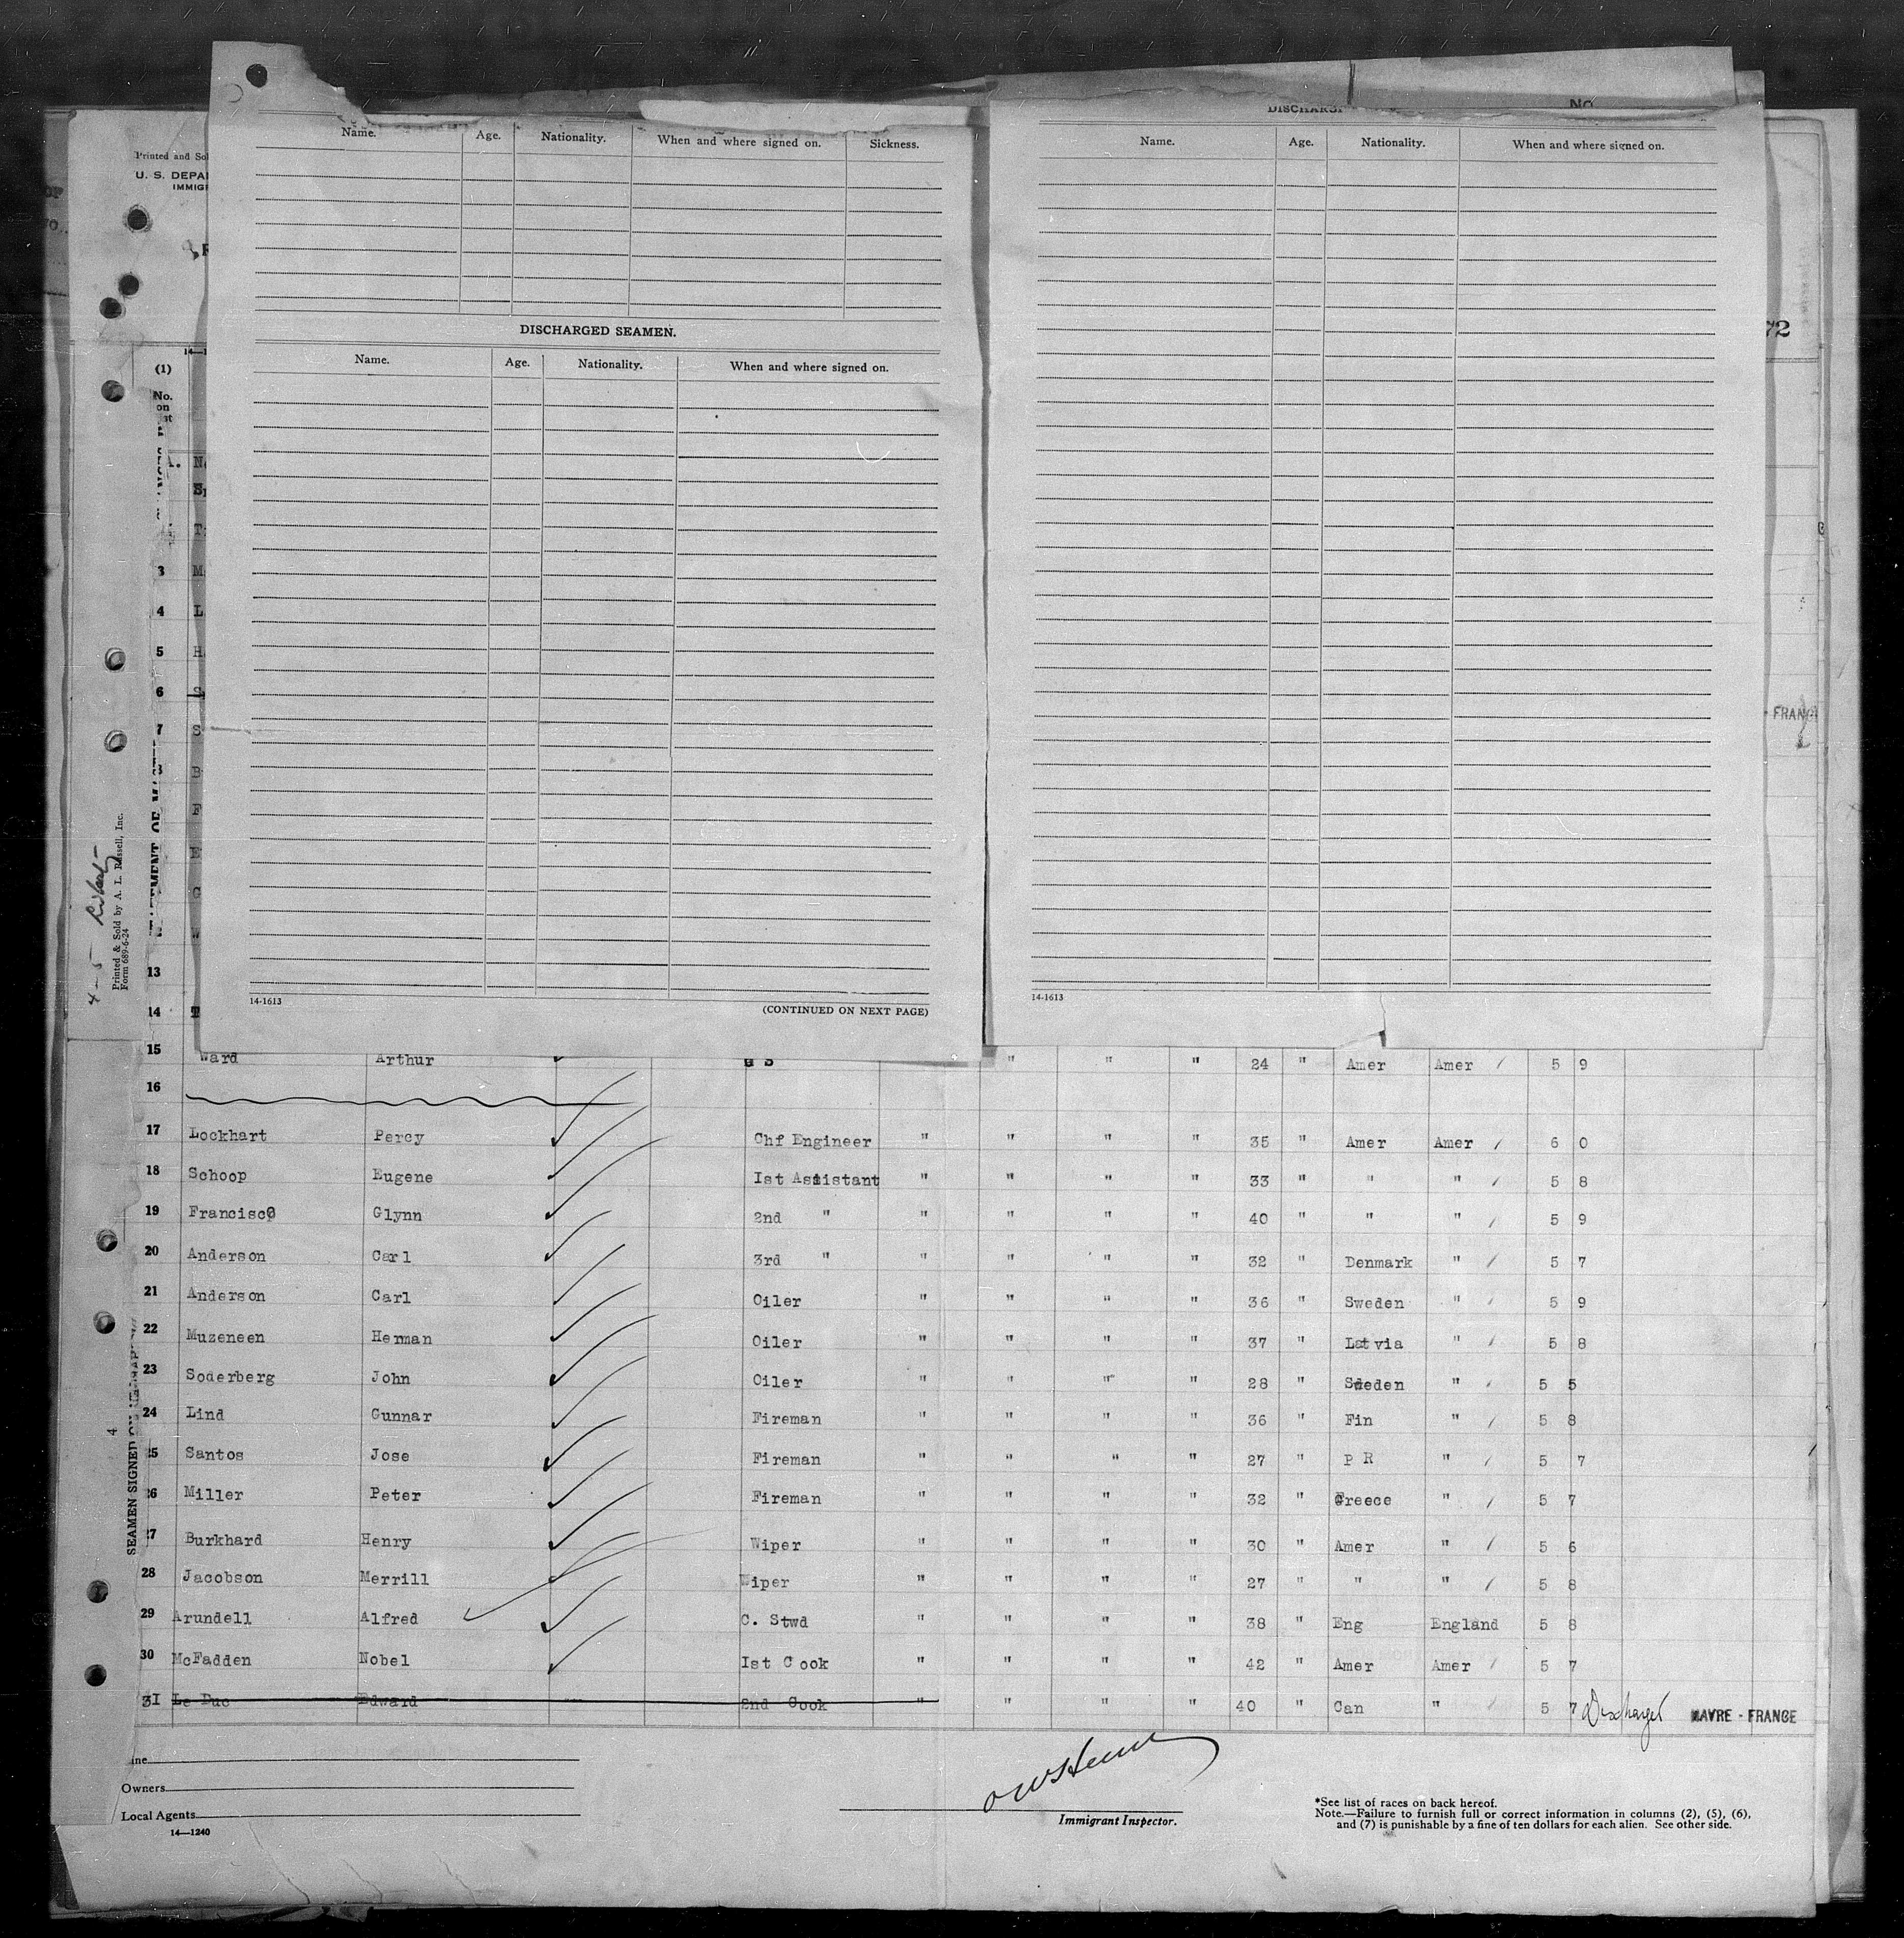 Printed and Sol
U. S. DEPA
IMMIG
(1)
No.
on
3
4
5
6
7
13
14
Name. Age. Nationality. When and where signed on. Sickness.
DISCHARGED SEAMEN.
Name. Age. Nationality. When and where signed on.
14-1613 (CONTINUED ON NEXT PAGE)
No
Name. Age. Nationality. When and where signed on.
14-1613
72
- FRANC
Printed & Sold by A. L. Russell, Inc.
Form 689-6-24
4
SEAMEN SIGNED ON
15 Ward Arthur " " " 24 " Amer Amer / 5 9
16
17 Lockhart Percy Chf Engineer " " " " 35 " Amer Amer / 6 0
18 Schoop Eugene Ist Assistant " " " " 33 " " " / 5 8
19 Francisco Glynn 2nd " " " " " 40 " " " / 5 9
20 Anderson Carl 3rd " " " " " 32 " Denmark " / 5 7
21 Anderson Carl Oiler " " " " 36 " Sweden " / 5 9
22 Muzeneen Herman Oiler " " " " 37 " Latvia " / 5 8
23 Soderberg John Oiler " " " " 28 " Sweden " / 5 5
24 Lind Gunnar Fireman " " " " 36 " Fin " / 5 8
25 Santos Jose Fireman " " " " 27 " P R " / 5 7
26 Miller Peter Fireman " " " " 32 " Greece " / 5 7
27 Burkhard Henry Wiper " " " " 30 " Amer " / 5 6
28 Jacobson Merrill Wiper " " " " 27 " " " / 5 8
29 Arundell Alfred C. Stwd " " " " 38 " Eng England 5 8
30 McFadden Nobel Ist Cook " " " " 42 " Amer Amer / 5 7
3I Le Duc Edward 2nd Cook " " " " 40 " Can " / 5 7 Discharged HAVRE - FRANCE
Owners
Local Agents
14—1240
Immigrant Inspector.
*See list of races on back hereof.
Note.—Failure to furnish full or correct information in columns (2), (5), (6),
and (7) is punishable by a fine of ten dollars for each alien. See other side.